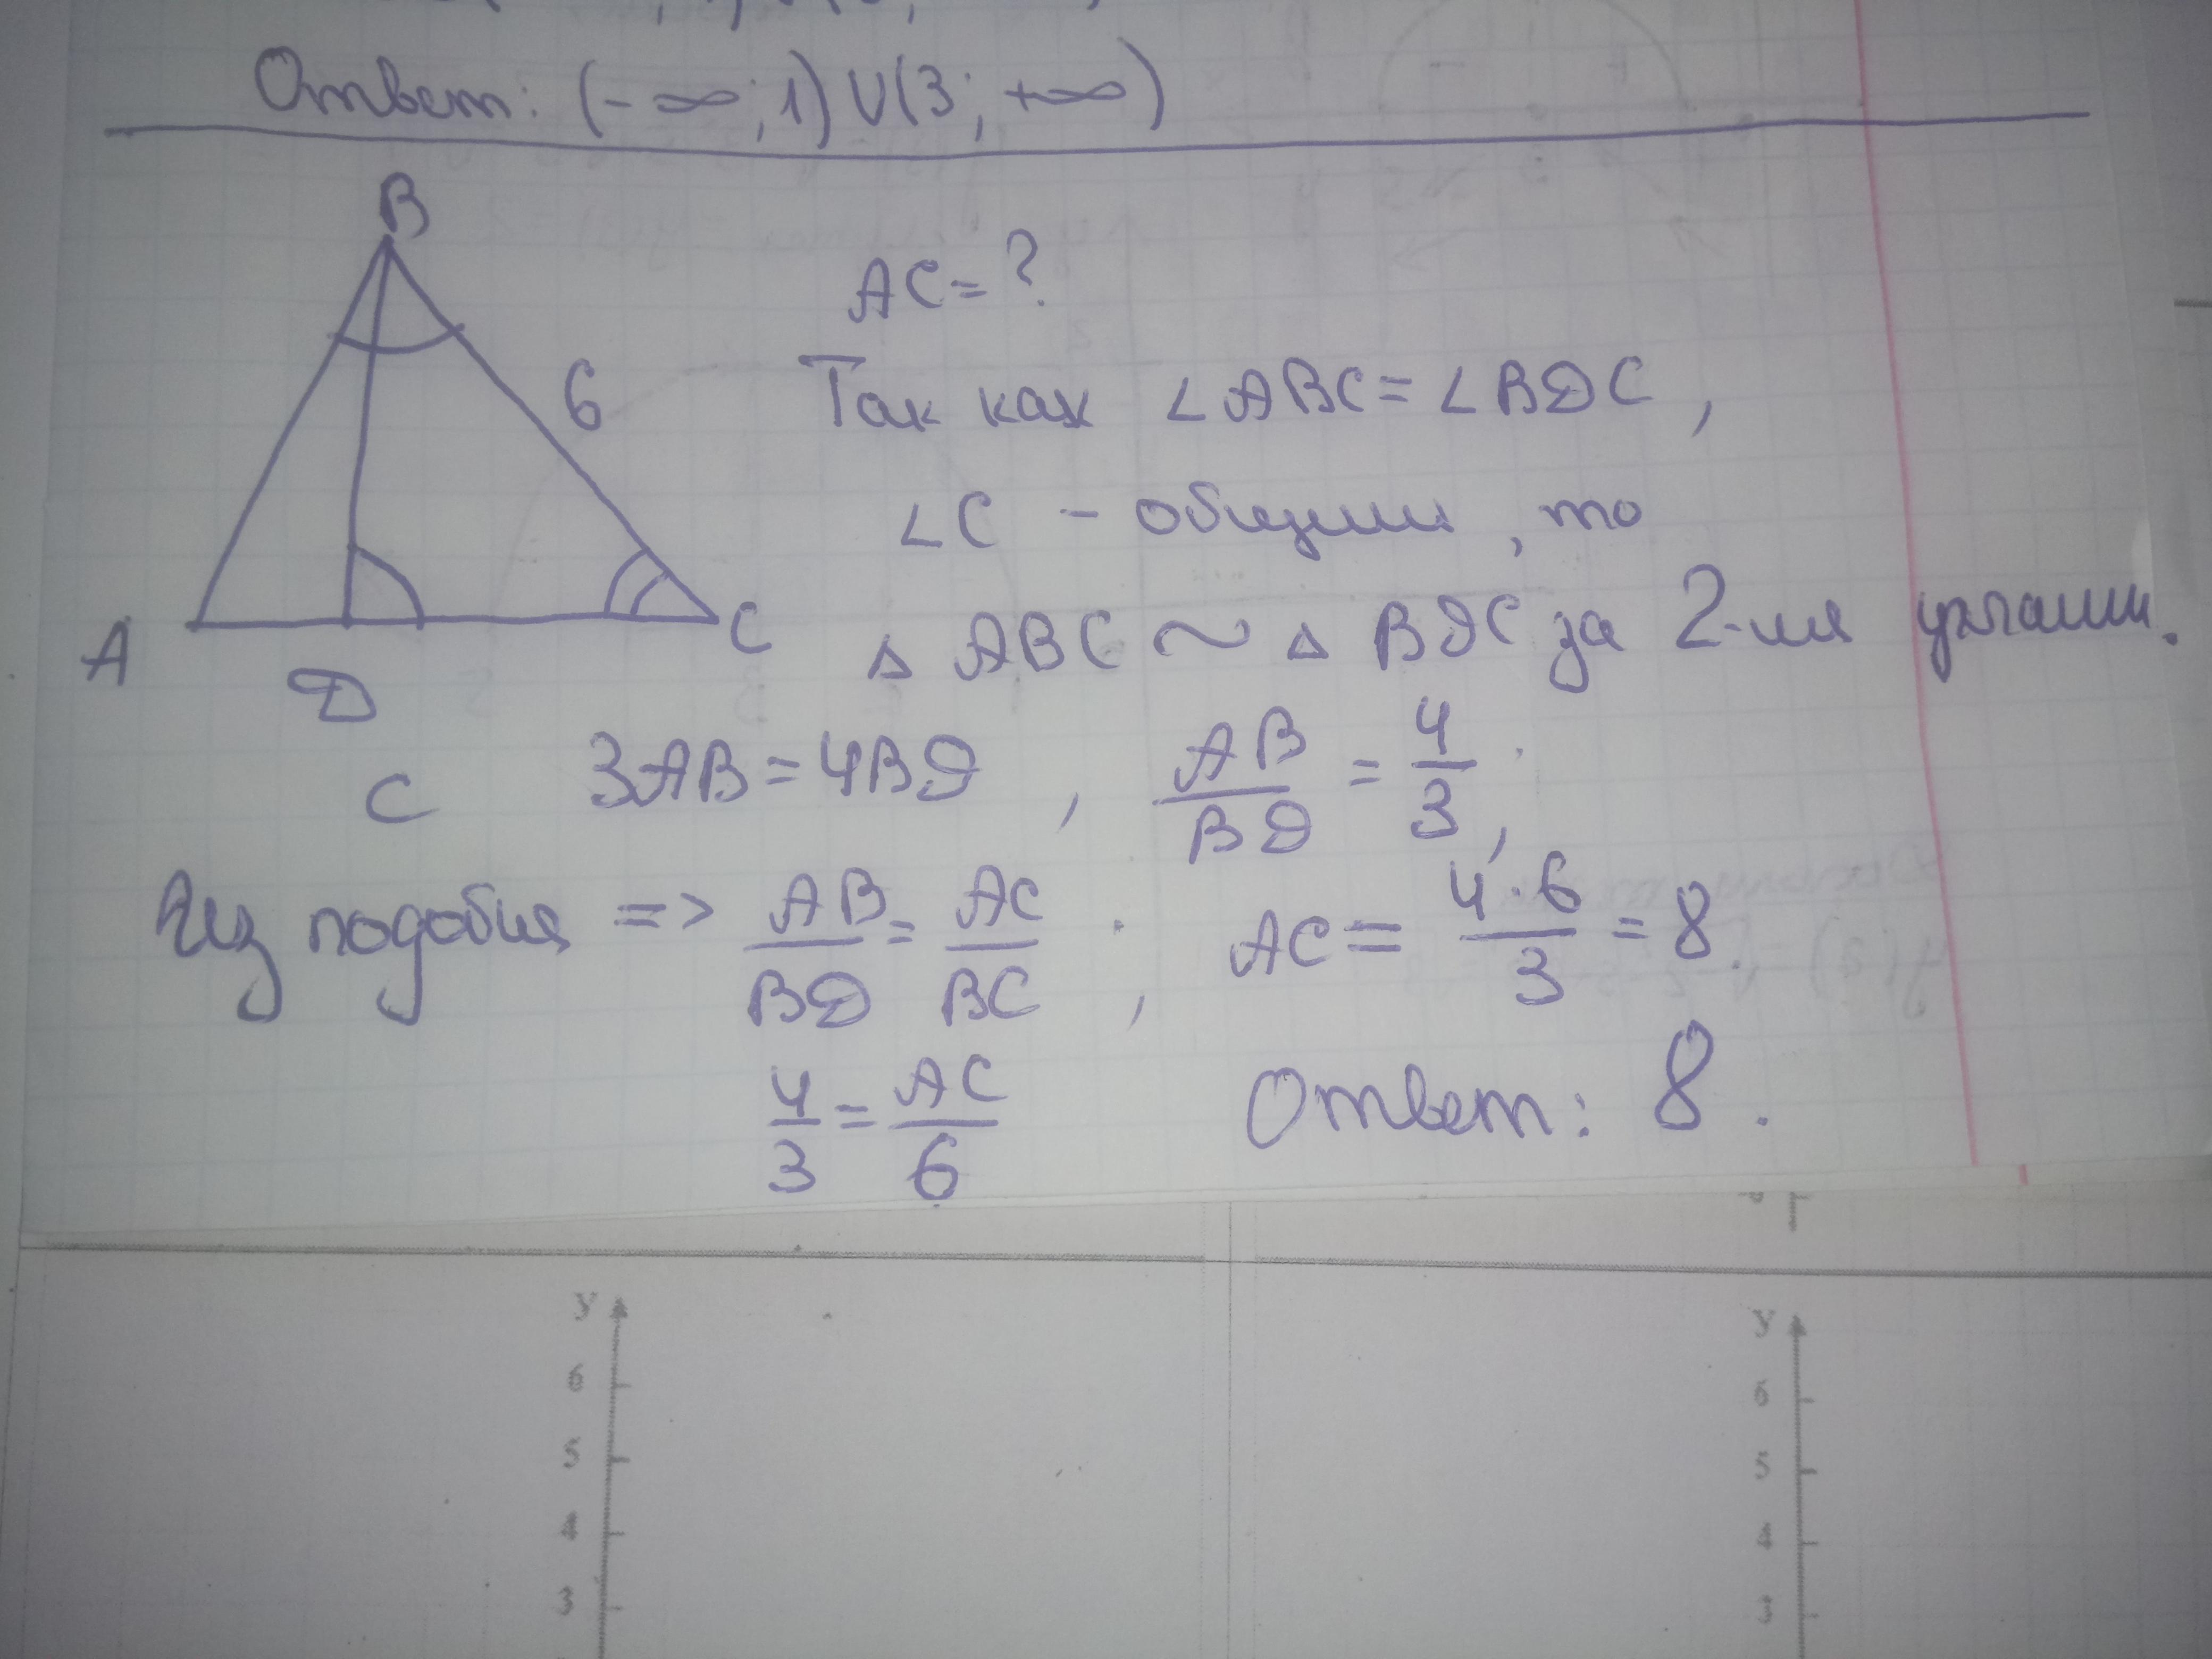 Ответ: (-∞; 1) ∪ (3; +∞)
B
AC = ?
6
Так как ∠ABC = ∠BDC,
∠C - общий, то
A
D
C
△ABC ~ △BDC за 2-мя углами.
C 3AB = 4BD, AB/BD = 4/3,
Из подобия => AB/BD = AC/BC, AC = 4·6/3 = 8.
4/3 = AC/6
Ответ: 8.
y
6
5
4
3
y
6
5
4
3